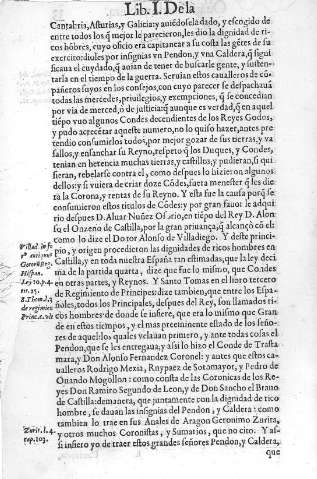 Lib. I. De la
Cantabria, Asturias, y Galicia: y auiẽdoselado, y escogido de
entre todos los q̃ mejor le parecieron, les dio la dignidad de ri
cos hõbres, cuyo oficio era capitanear a su costa las gẽtes de su
exercito: dioles por insignias vn Pendon, y vna Caldera, q̃ sig
ficaua el cuydado, q̃ auian de tener de buscarle gente, y susten-
tarla en el tiempo de la guerra. Seruian estos caualleros de cõ-
pañeros suyos en los consejos, con cuyo parecer se despachauã
todas las mercedes, priuilegios, y exempciones, q̃ se concedian
por via de merced, ò de justicia: q̃ aunque es verdad, q̃ en aquel
tiẽpo vuo algunos Condes decendientes de los Reyes Godos,
y pudo acrecẽtar aqueste numero, no lo quiso hazer, antes pre
tendio consumirlos todos, por mejor gozar de sus tierras, y va
sallos, y ensanchar su Reyno, respeto q̃ los Duques, y Condes,
tenian en herencia muchas tierras, y castillos; y pudieran, si qui
sieran, rebelarse contra el, como despues lo hizieron algunos
dellos: y si vuiera de criar doze Cõdes, fuera menester q̃ les die
ra la Corona, y rentas de su Reyno. Y esta fue la causa porq̃ se
consumieron estos titulos de Cõdes: y por gran fauor le adqui
rio despues D. Aluar Nuñez Osorio, en tiẽpo del Rey D. Alon
so el Onzeno de Castilla, por la gran priuança, q̃ alcançò cõ el:
como lo dize el Dotor Alonso de Villadiego. Y deste princi-
pio, y origen procedieron las dignidades de ricos hombres en
Castilla, y en toda nuestra España tan estimadas, que la ley deci
ma de la partida quarta, dize que fue lo mismo, que Condes
en otras partes, y Reynos. Y Santo Tomas en el libro tercero
de Regimiento de Principes: dize tambien, que entre los Espa-
ñoles, todos los Principales, despues del Rey, son llamados ri-
cos hombres: de donde se infiere, que era lo mismo que Gran
de en estos tiempos, y el mas preeminente estado de los seño-
res de aquel: los quales velauan primero, y ante todas cosas el
Pendon, que se les entregaua; y assi lo hizo el Conde de Trasta
mara, y Don Alonso Fernandez Coronel: y antes que estos ca-
ualleros Rodrigo Mexia, Ruypaez de Sotomayor, y Pedro de
Ouando Mogollon: como consta de las Coronicas de los Re-
yes Don Ramiro Segundo de Leon, y de Don Sancho el Brauo
de Castilla: demanera, que juntamente con la dignidad de rico
hombre, se dauan las insignias del Pendon, y Caldera: como
tambien lo trae en sus Anales de Aragon Geronimo Zurita,
y otros muchos Coronistas, y Sumarios, que no cito. Y as-
si infiero yo de traer estos grandes señores Pendon, y Caldera,
que
Hispan.
Ley 10. p. 4.
tit. 25.
S. Thom. l. 3
de regimin.
Zurit. l. 4.
cap. 103.